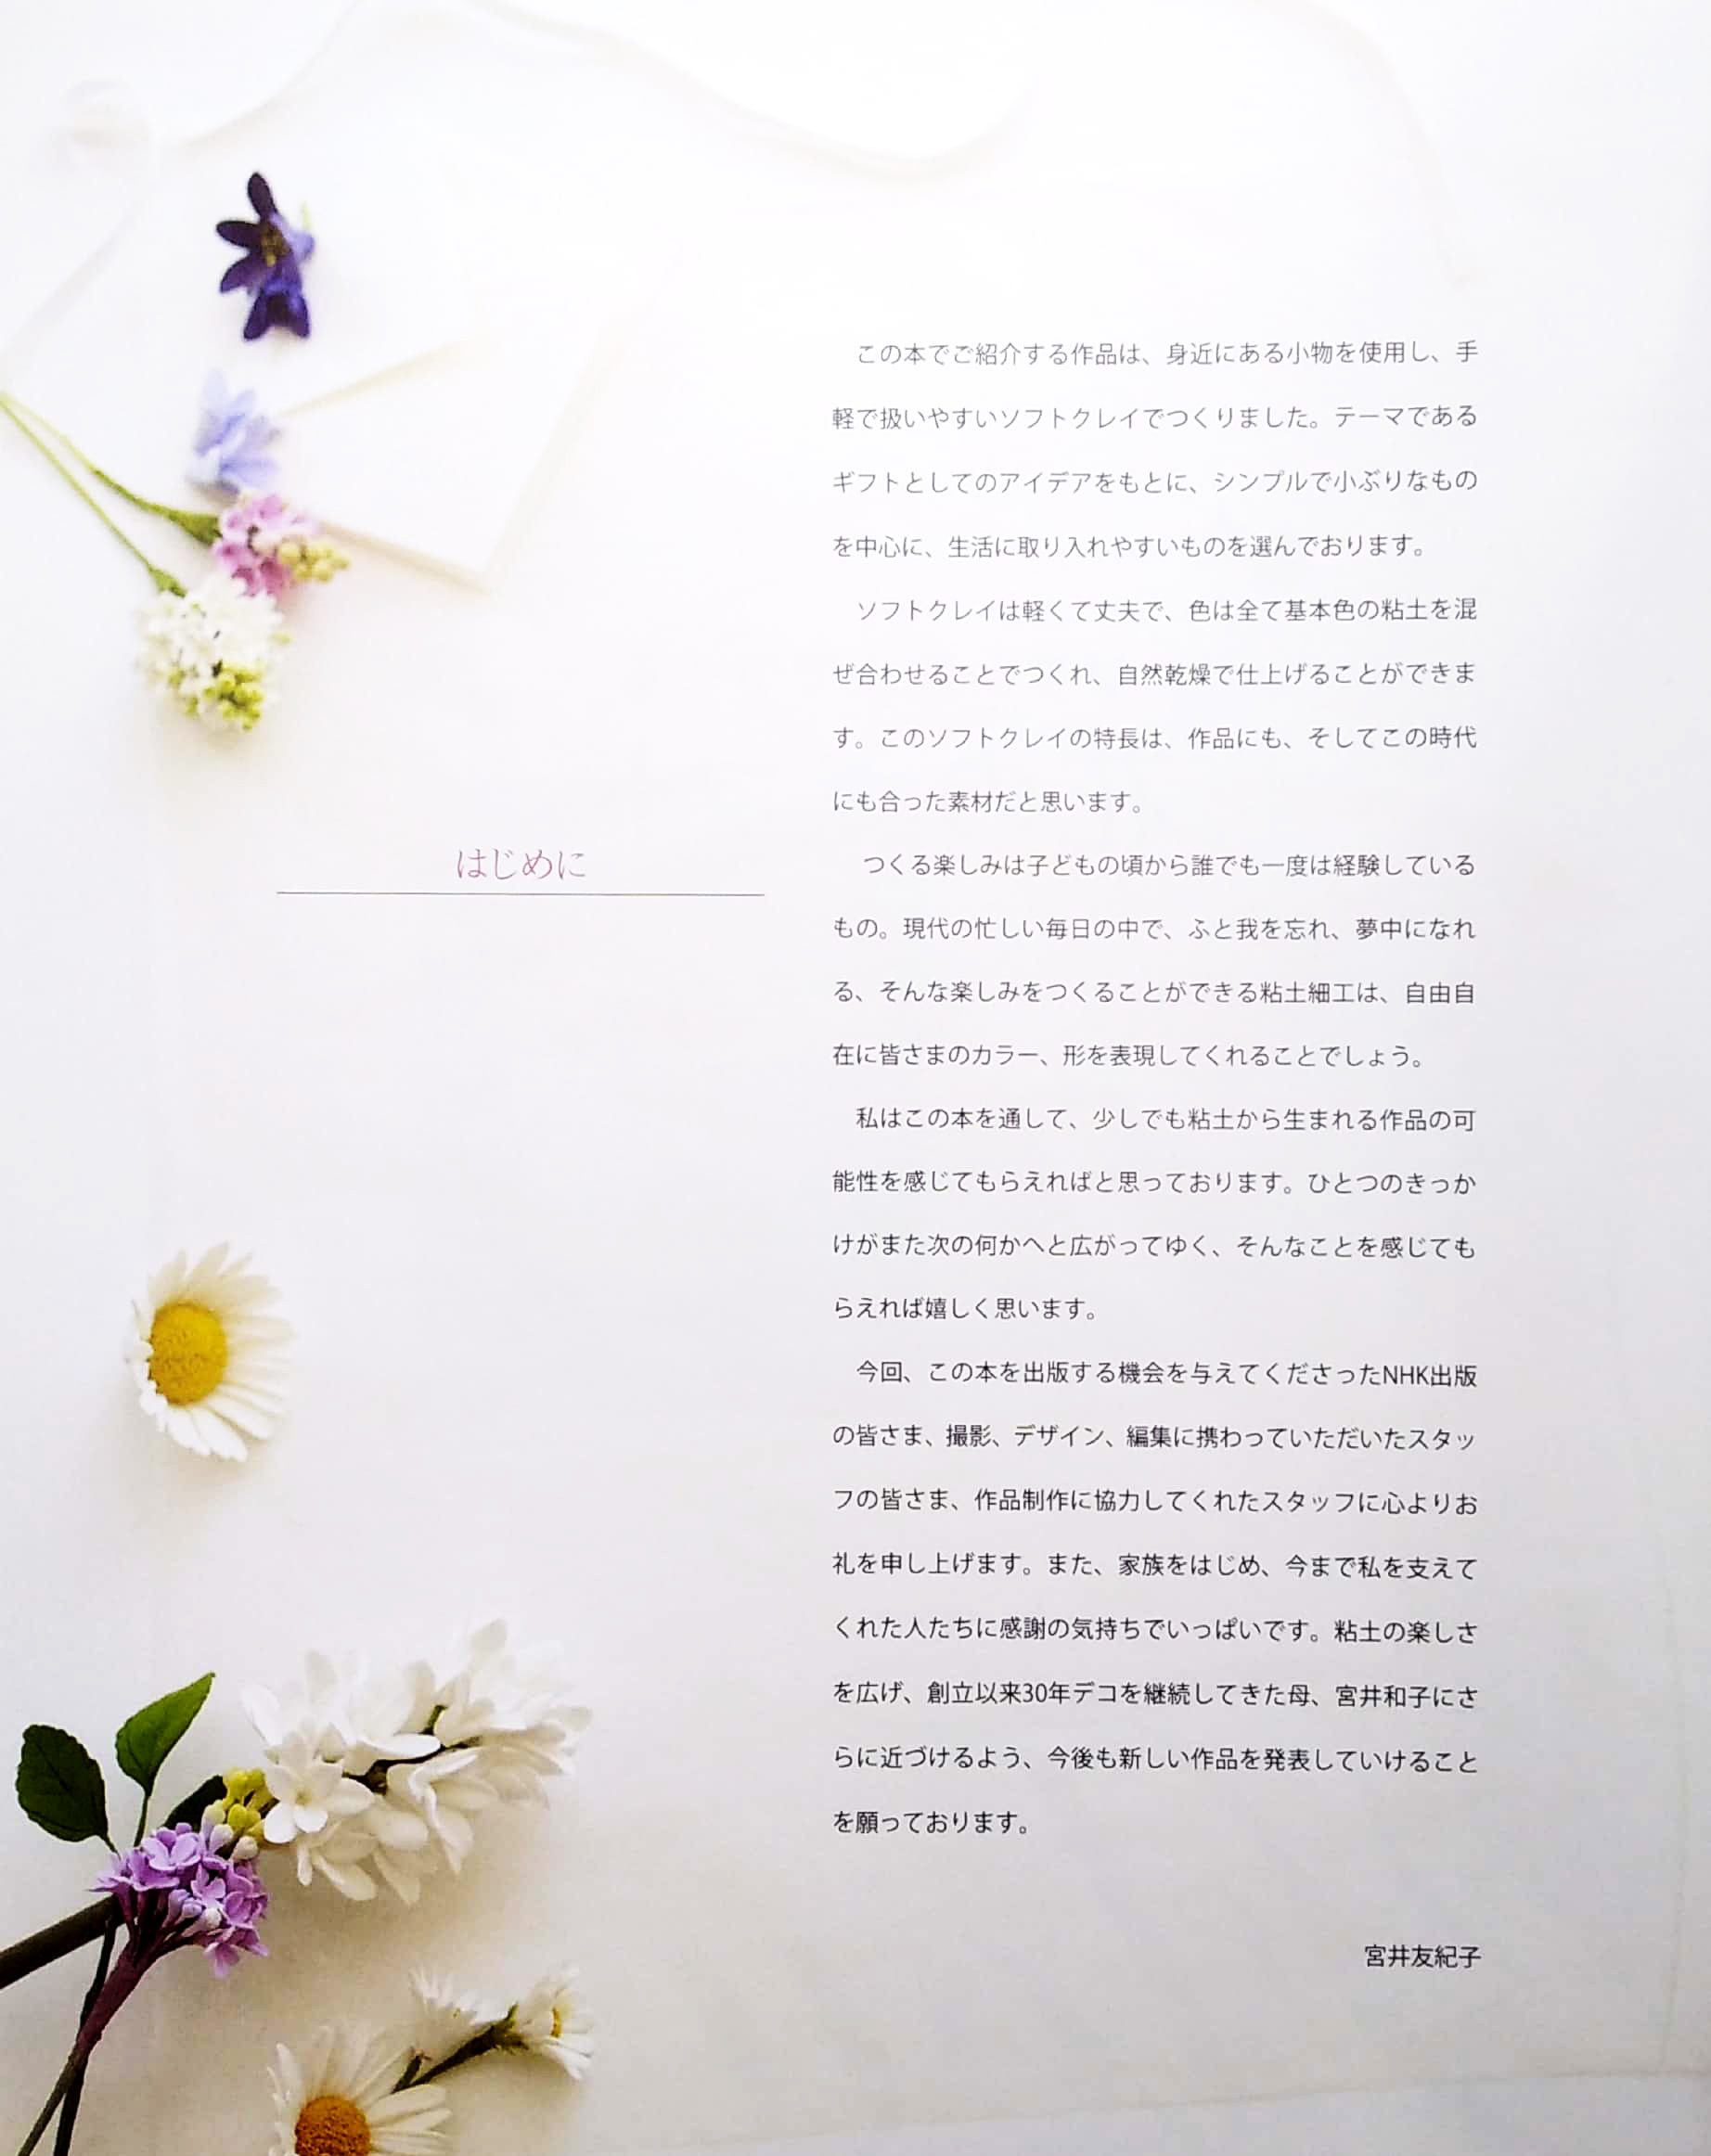 はじめに
この本でご紹介する作品は、身近にある小物を使用し、手
軽で扱いやすいソフトクレイでつくりました。テーマである
ギフトとしてのアイデアをもとに、シンプルで小ぶりなもの
を中心に、生活に取り入れやすいものを選んでおります。
ソフトクレイは軽くて丈夫で、色は全て基本色の粘土を混
ぜ合わせることでつくれ、自然乾燥で仕上げることができま
す。このソフトクレイの特長は、作品にも、そしてこの時代
にも合った素材だと思います。
つくる楽しみは子どもの頃から誰でも一度は経験している
もの。現代の忙しい毎日の中で、ふと我を忘れ、夢中になれ
る、そんな楽しみをつくることができる粘土細工は、自由自
在に皆さまのカラー、形を表現してくれることでしょう。
私はこの本を通して、少しでも粘土から生まれる作品の可
能性を感じてもらえればと思っております。ひとつのきっか
けがまた次の何かへと広がってゆく、そんなことを感じても
らえれば嬉しく思います。
今回、この本を出版する機会を与えてくださったNHK出版
の皆さま、撮影、デザイン、編集に携わっていただいたスタッ
フの皆さま、作品制作に協力してくれたスタッフに心よりお
礼を申し上げます。また、家族をはじめ、今まで私を支えて
くれた人たちに感謝の気持ちでいっぱいです。粘土の楽しさ
を広げ、創立以来30年デコを継続してきた母、宮井和子にさ
らに近づけるよう、今後も新しい作品を発表していけること
を願っております。
宮井友紀子